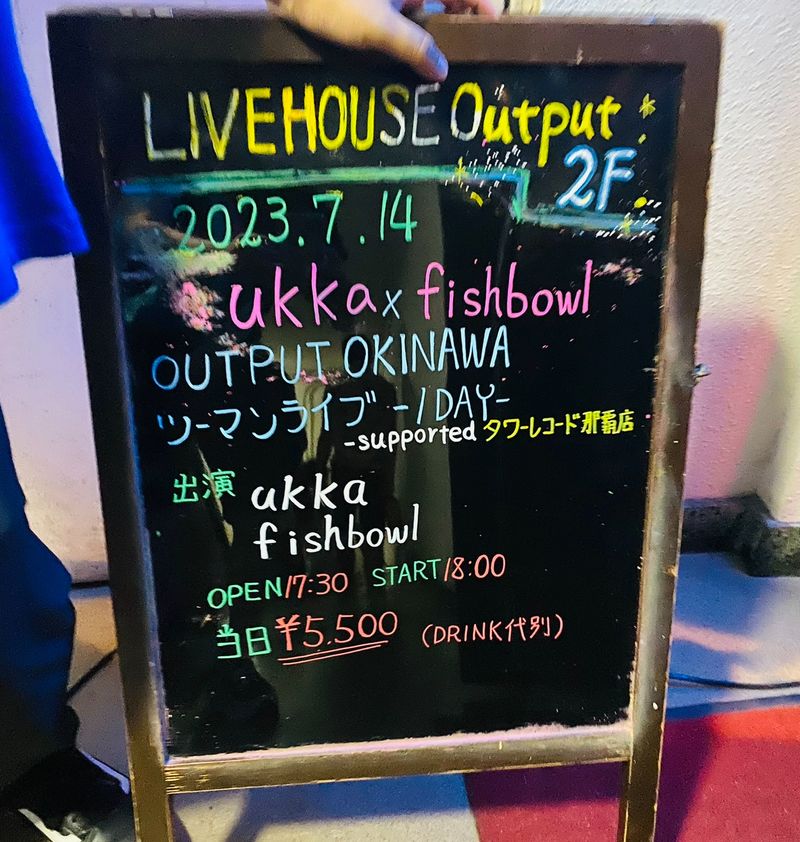 LIVEHOUSE Output
2F
2023.7.14
ukka x fishbowl
OUTPUT OKINAWA
ツーマンライブ -1DAY-
-supported タワーレコード那覇店
出演 ukka
fishbowl
OPEN/17:30 START/18:00
当日 ¥5.500 (DRINK代別)